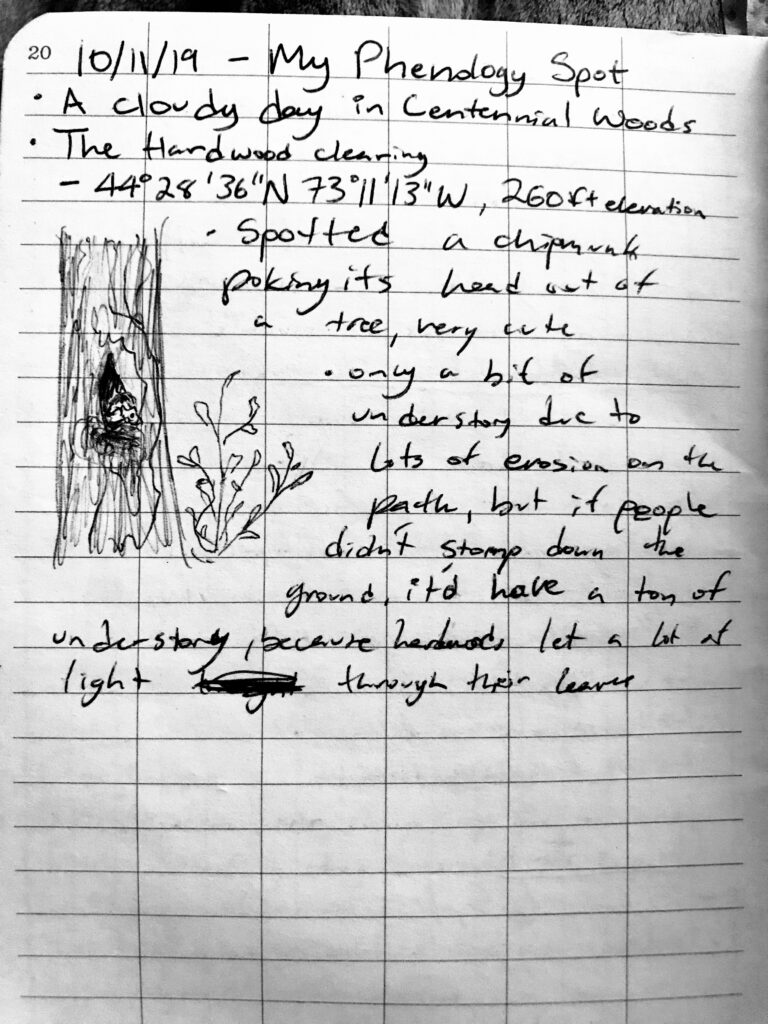 20 10/11/19 - My Phenology Spot
• A cloudy day in Centennial Woods
• The Hardwood clearing
- 44°28'36"N 73°11'13"W, 260ft elevation
• Spotted a chipmunk
poking its head out of
a tree, very cute
• only a bit of
understory due to
lots of erosion on the
path, but if people
didn't stomp down the
ground, it'd have a ton of
understory, because hardwoods let a lot of
light through their leaves